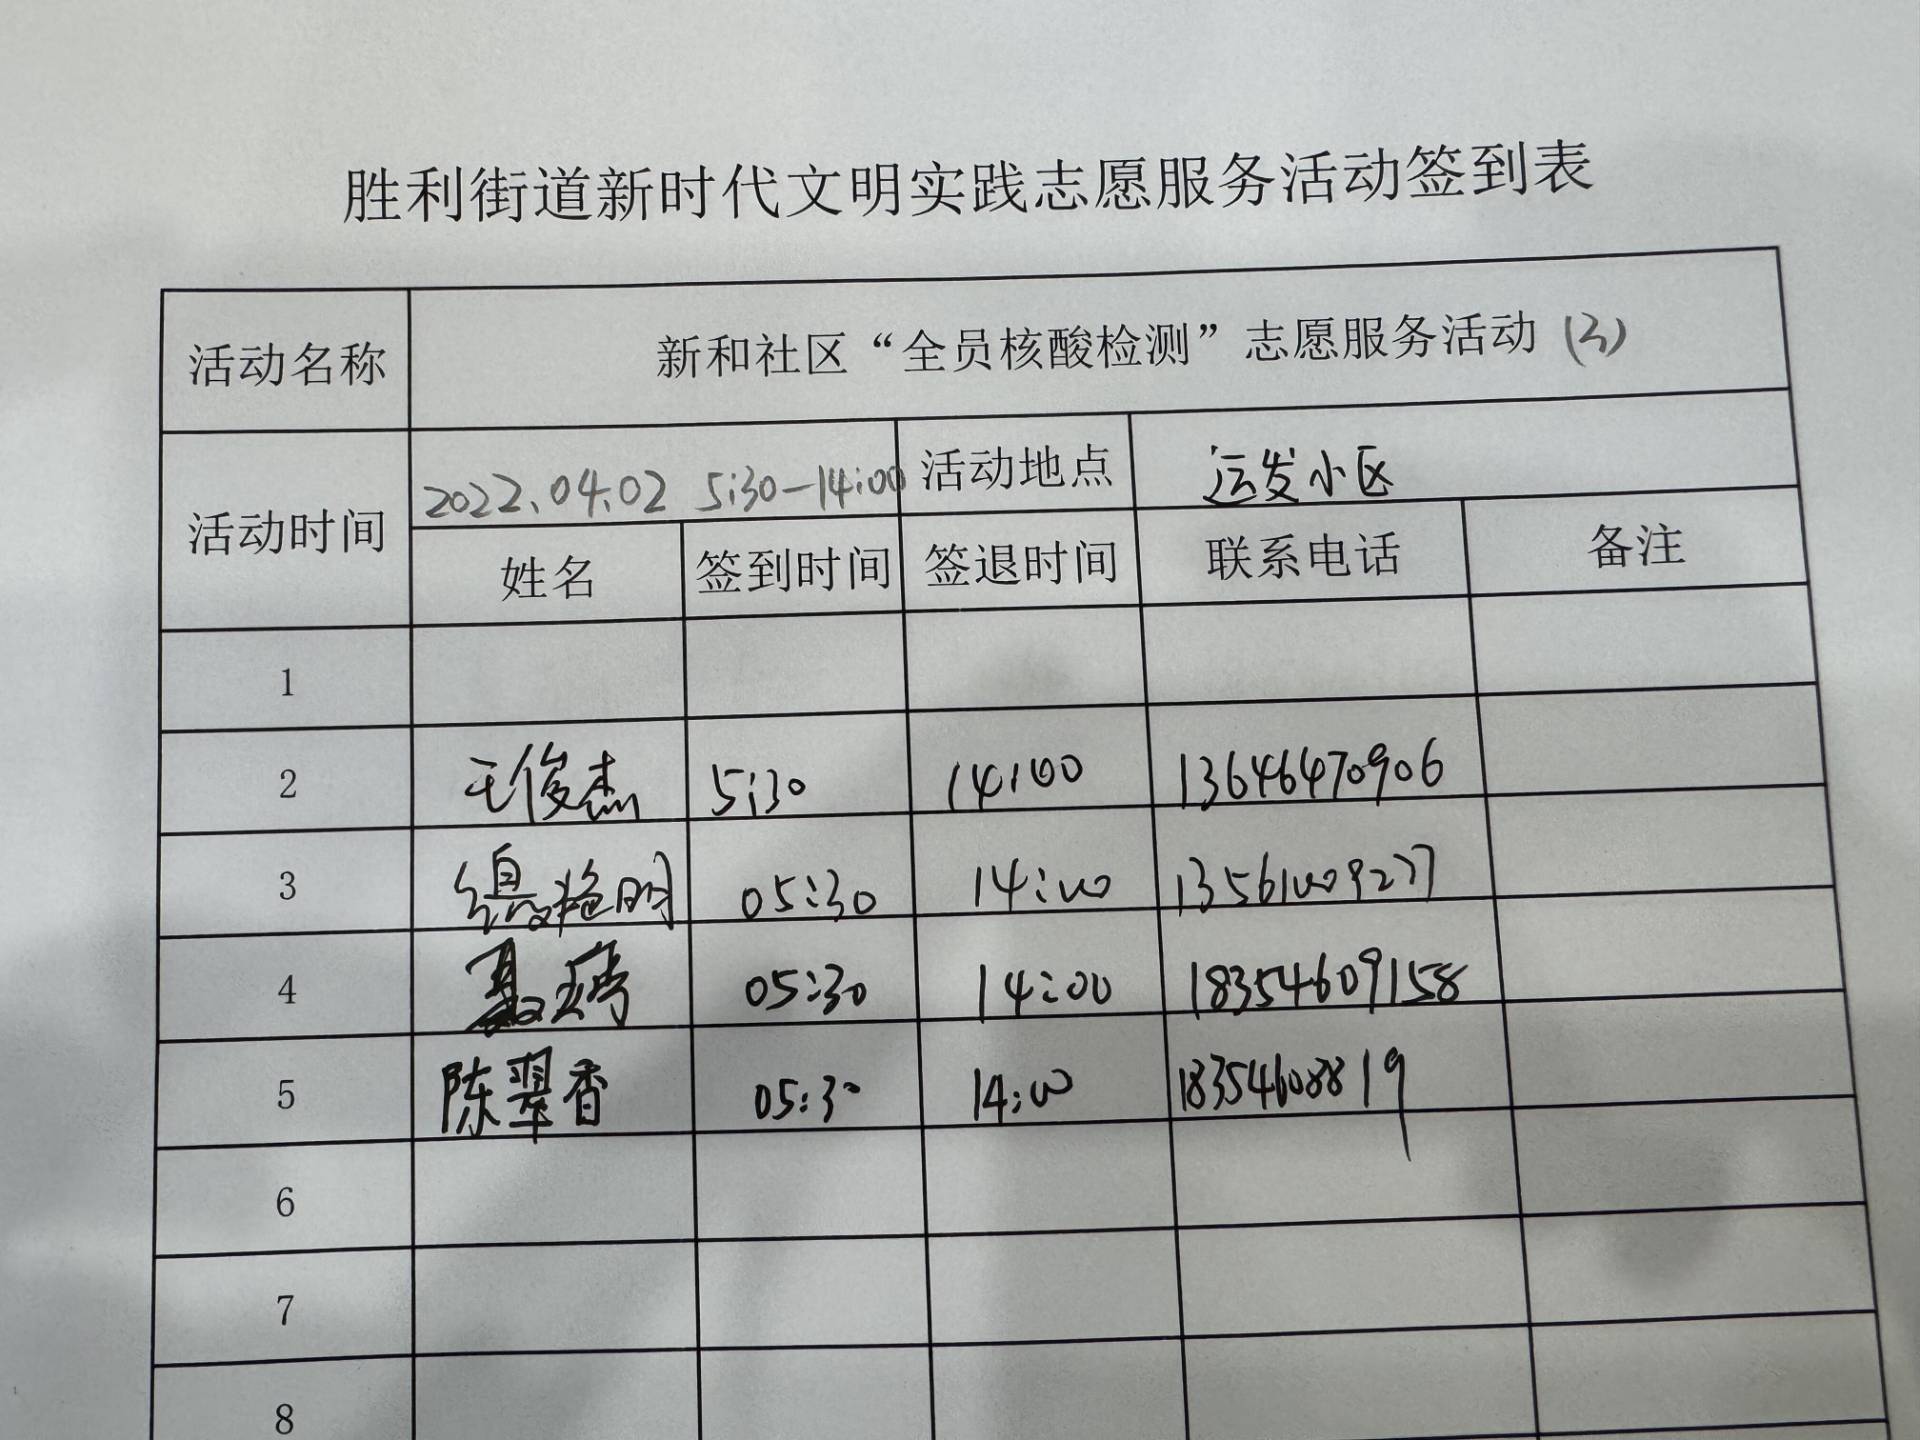 胜利街道新时代文明实践志愿服务活动签到表
活动名称 新和社区“全员核酸检测”志愿服务活动 (3)
活动时间 2022.04.02 5:30-14:00 活动地点 运发小区
姓名 签到时间 签退时间 联系电话 备注
1
2 王俊杰 5:30 14:00 13646470906
3 05:30 14:00 13561009277
4 05:30 14:00 18354609158
5 陈翠香 05:30 14:00 18354608819
6
7
8